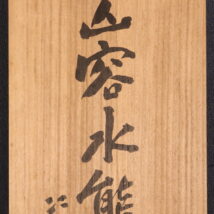 山容水態